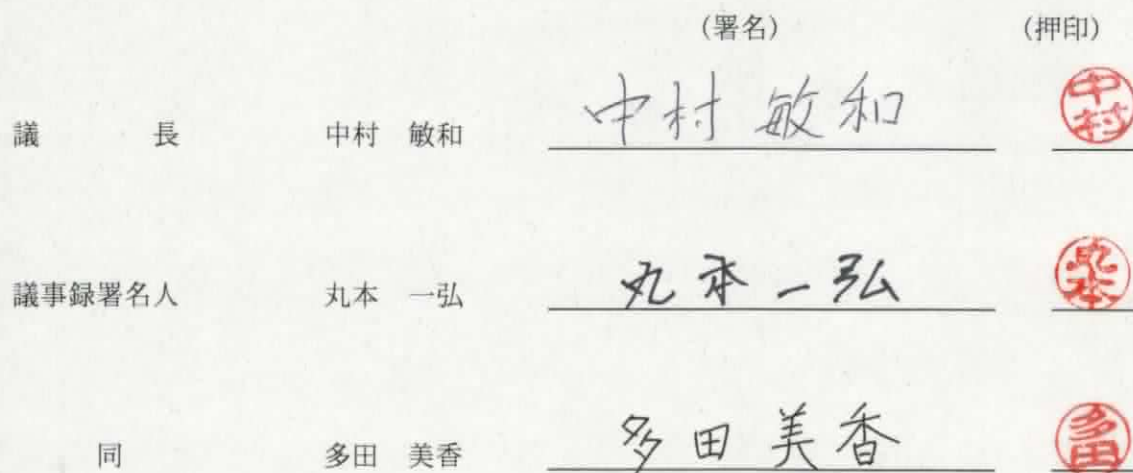 (署名) (押印)
議 長 中村 敏和 中村 敏和 中村
議事録署名人 丸本 一弘 丸本 一弘 丸本
同 多田 美香 多田 美香 多田